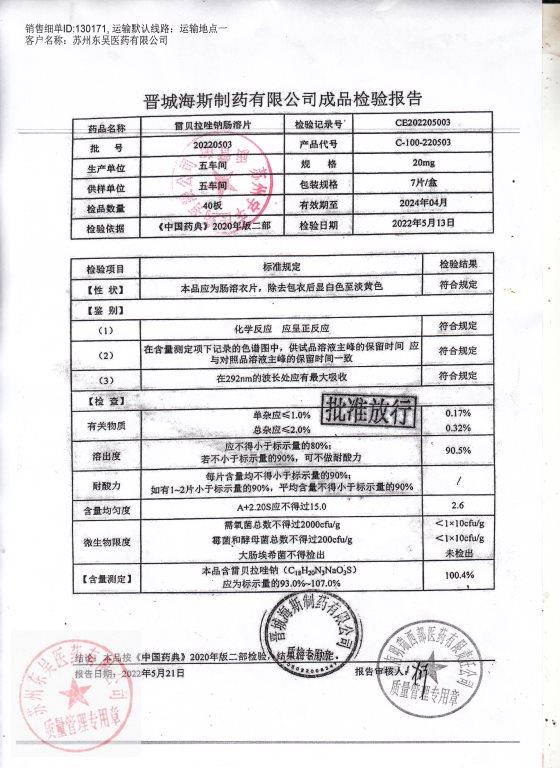 销售细单ID:130171, 运输默认线路：运输地点一
客户名称：苏州东吴医药有限公司
晋城海斯制药有限公司成品检验报告
药品名称 雷贝拉唑钠肠溶片 检验记录号 CE202205003
批 号 20220503 产品代号 C-100-220503
生产单位 五车间 规 格 20mg
供样单位 五车间 包装规格 7片/盒
检品数量 40板 有效期至 2024年04月
检验依据 《中国药典》2020年版二部 检验日期 2022年5月13日
检验项目 标准规定 检验结果
【性 状】 本品应为肠溶衣片，除去包衣后显白色至淡黄色 符合规定
【鉴 别】
（1） 化学反应 应呈正反应 符合规定
（2） 在含量测定项下记录的色谱图中，供试品溶液主峰的保留时间 应
与对照品溶液主峰的保留时间一致 符合规定
（3） 在292nm的波长处应有最大吸收 符合规定
【检 查】
批准放行
有关物质 单杂应≤1.0% 0.17%
总杂应≤2.0% 0.32%
溶出度 应不得小于标示量的80%；
若不小于标示量的90%，可不做耐酸力 90.5%
耐酸力 每片含量均不得小于标示量的90%；
如有1~2片小于标示量的90%，平均含量不得小于标示量的90% /
含量均匀度 A+2.20S应不得过15.0 2.6
微生物限度 需氧菌总数不得过2000cfu/g <1×10cfu/g
霉菌和酵母菌总数不得过200cfu/g <1×10cfu/g
大肠埃希菌不得检出 未检出
【含量测定】 本品含雷贝拉唑钠（C18H20N3NaO3S）
应为标示量的93.0%~107.0% 100.4%
结论：本品按《中国药典》2020年版二部检验，结果
报告日期：2022年5月21日 报告审核人：
晋城海斯制药有限公司
质检专用章
苏州东吴医药有限公司
质量管理专用章
西部医药有限责任公司
质量管理专用章